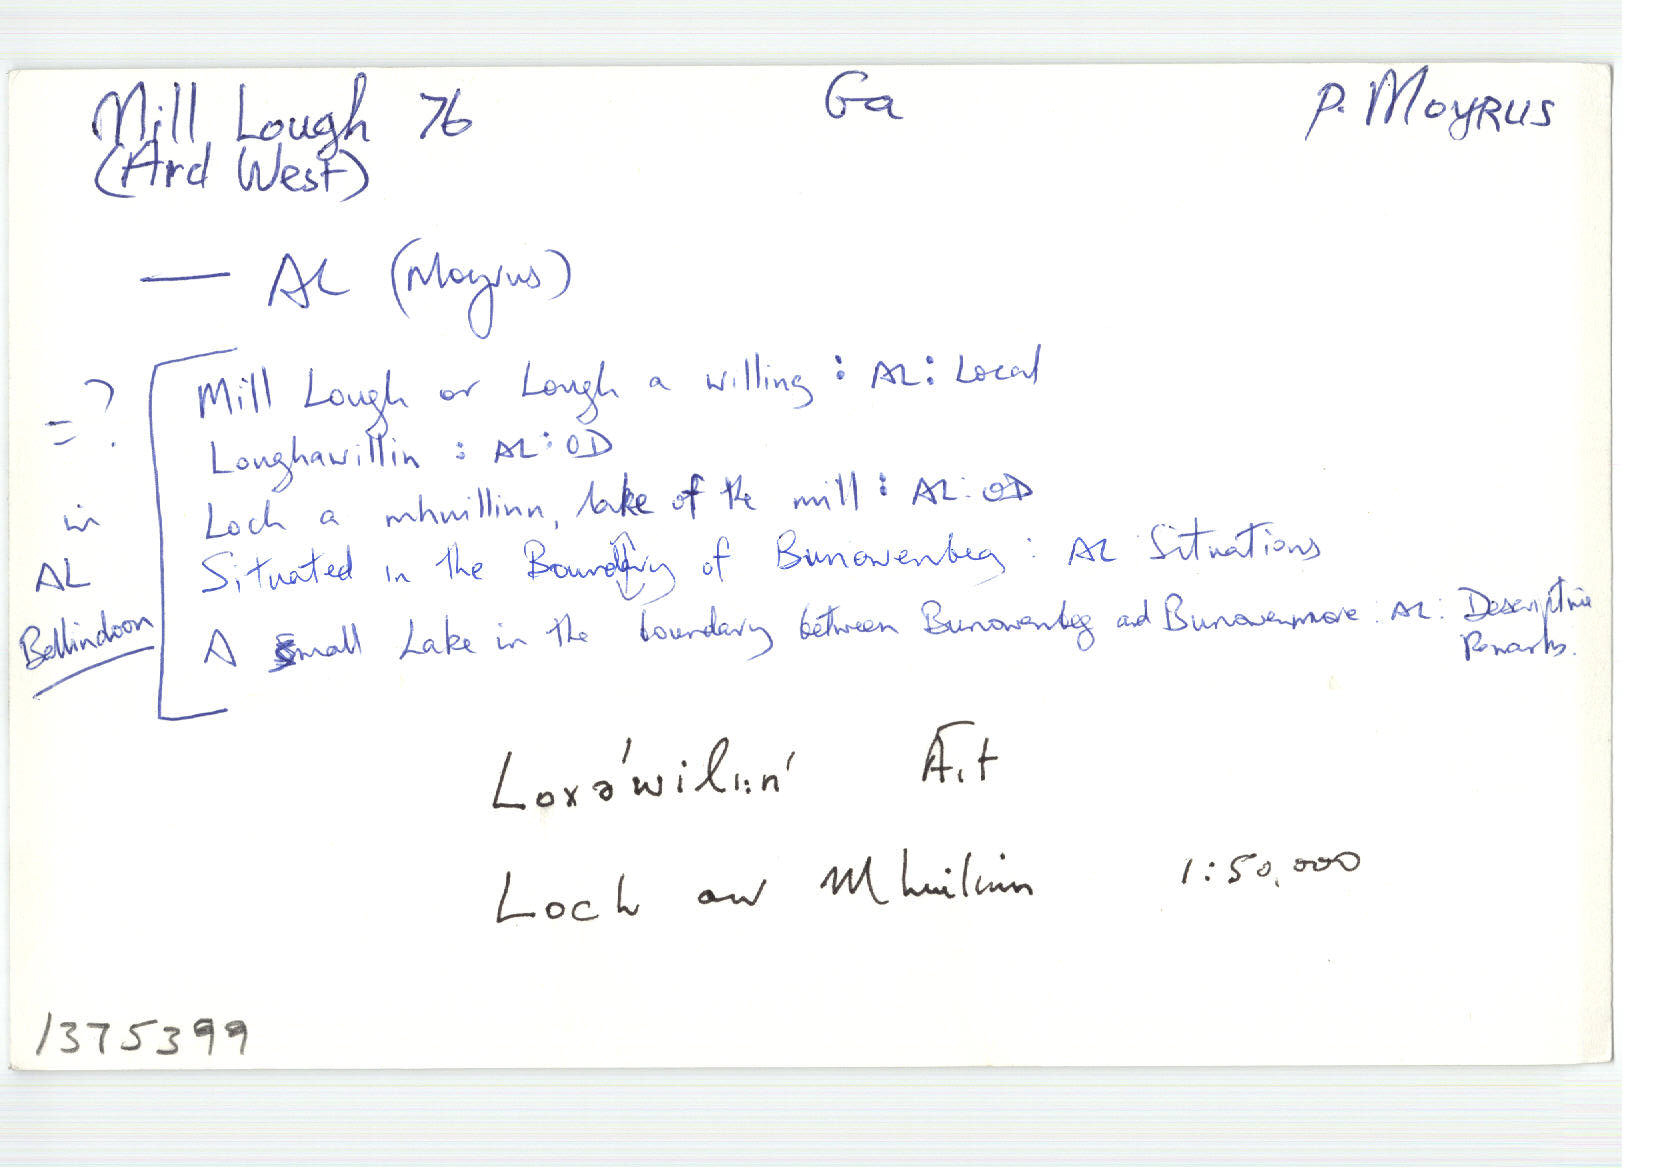 Mill Lough 76 Ga P. Moyrus
(Ard West)
— AL (Moyrus)
=? in AL Bellindoon
Mill Lough or Lough a willing : AL: Local
Loughawillin : AL: OD
Loch a mhuillinn, lake of the mill : AL: OD
Situated in the Boundry of Bunowenbeg : AL Situations
A Small Lake in the boundary between Bunowenbeg and Bunowenmore : AL: Descriptive Remarks.
Loxə'wil1:n' Áit
Loch an Mhuilinn 1:50,000
1375399